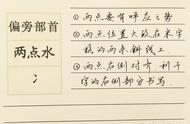 偏旁部首
两点水
冫
①两点要有呼应之势
②两点位置大致在米字
格的两条斜线上
③两点右侧对齐,利于
字的右侧部分书写